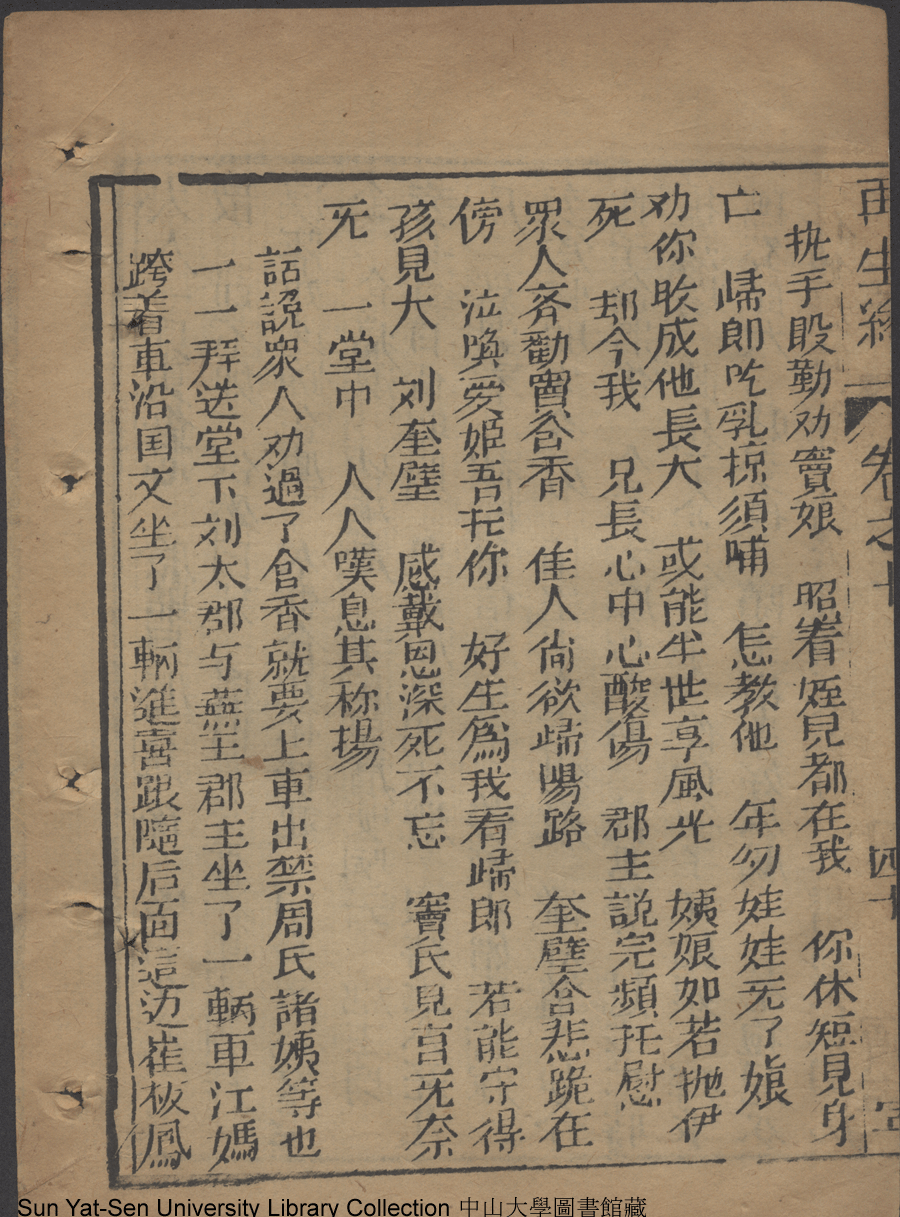 再生緣 卷之十 四十
执手殷勤劝竇娘 昭看姪見都在我 你休短見身
亡 歸郎吃乳掠須哺 怎教他 年幼娃娃旡了娘
劝你收成他長大 或能半世享風光 姨娘如若抛伊
死 却今我 兄長心中心酸傷 郡主説完頻托慰
眾人齐勸竇含香 佳人尚欲歸陽路 奎璧含悲跪在
傍 泣喚爱姬吾托你 好生為我看歸郎 若能守得
孩見大 刘奎璧 感戴恩深死不忘 竇氏見言旡奈
旡 一堂中 人人嘆息其称揚
話説眾人劝過了含香就要上車出禁周氏諸姨等也
一一拜送堂下刘太郡与燕王郡主坐了一輌車江媽
跨着車沿囯文坐了一輌進喜跟隨后面這边崔板鳳
Sun Yat-Sen University Library Collection 中山大學圖書館藏